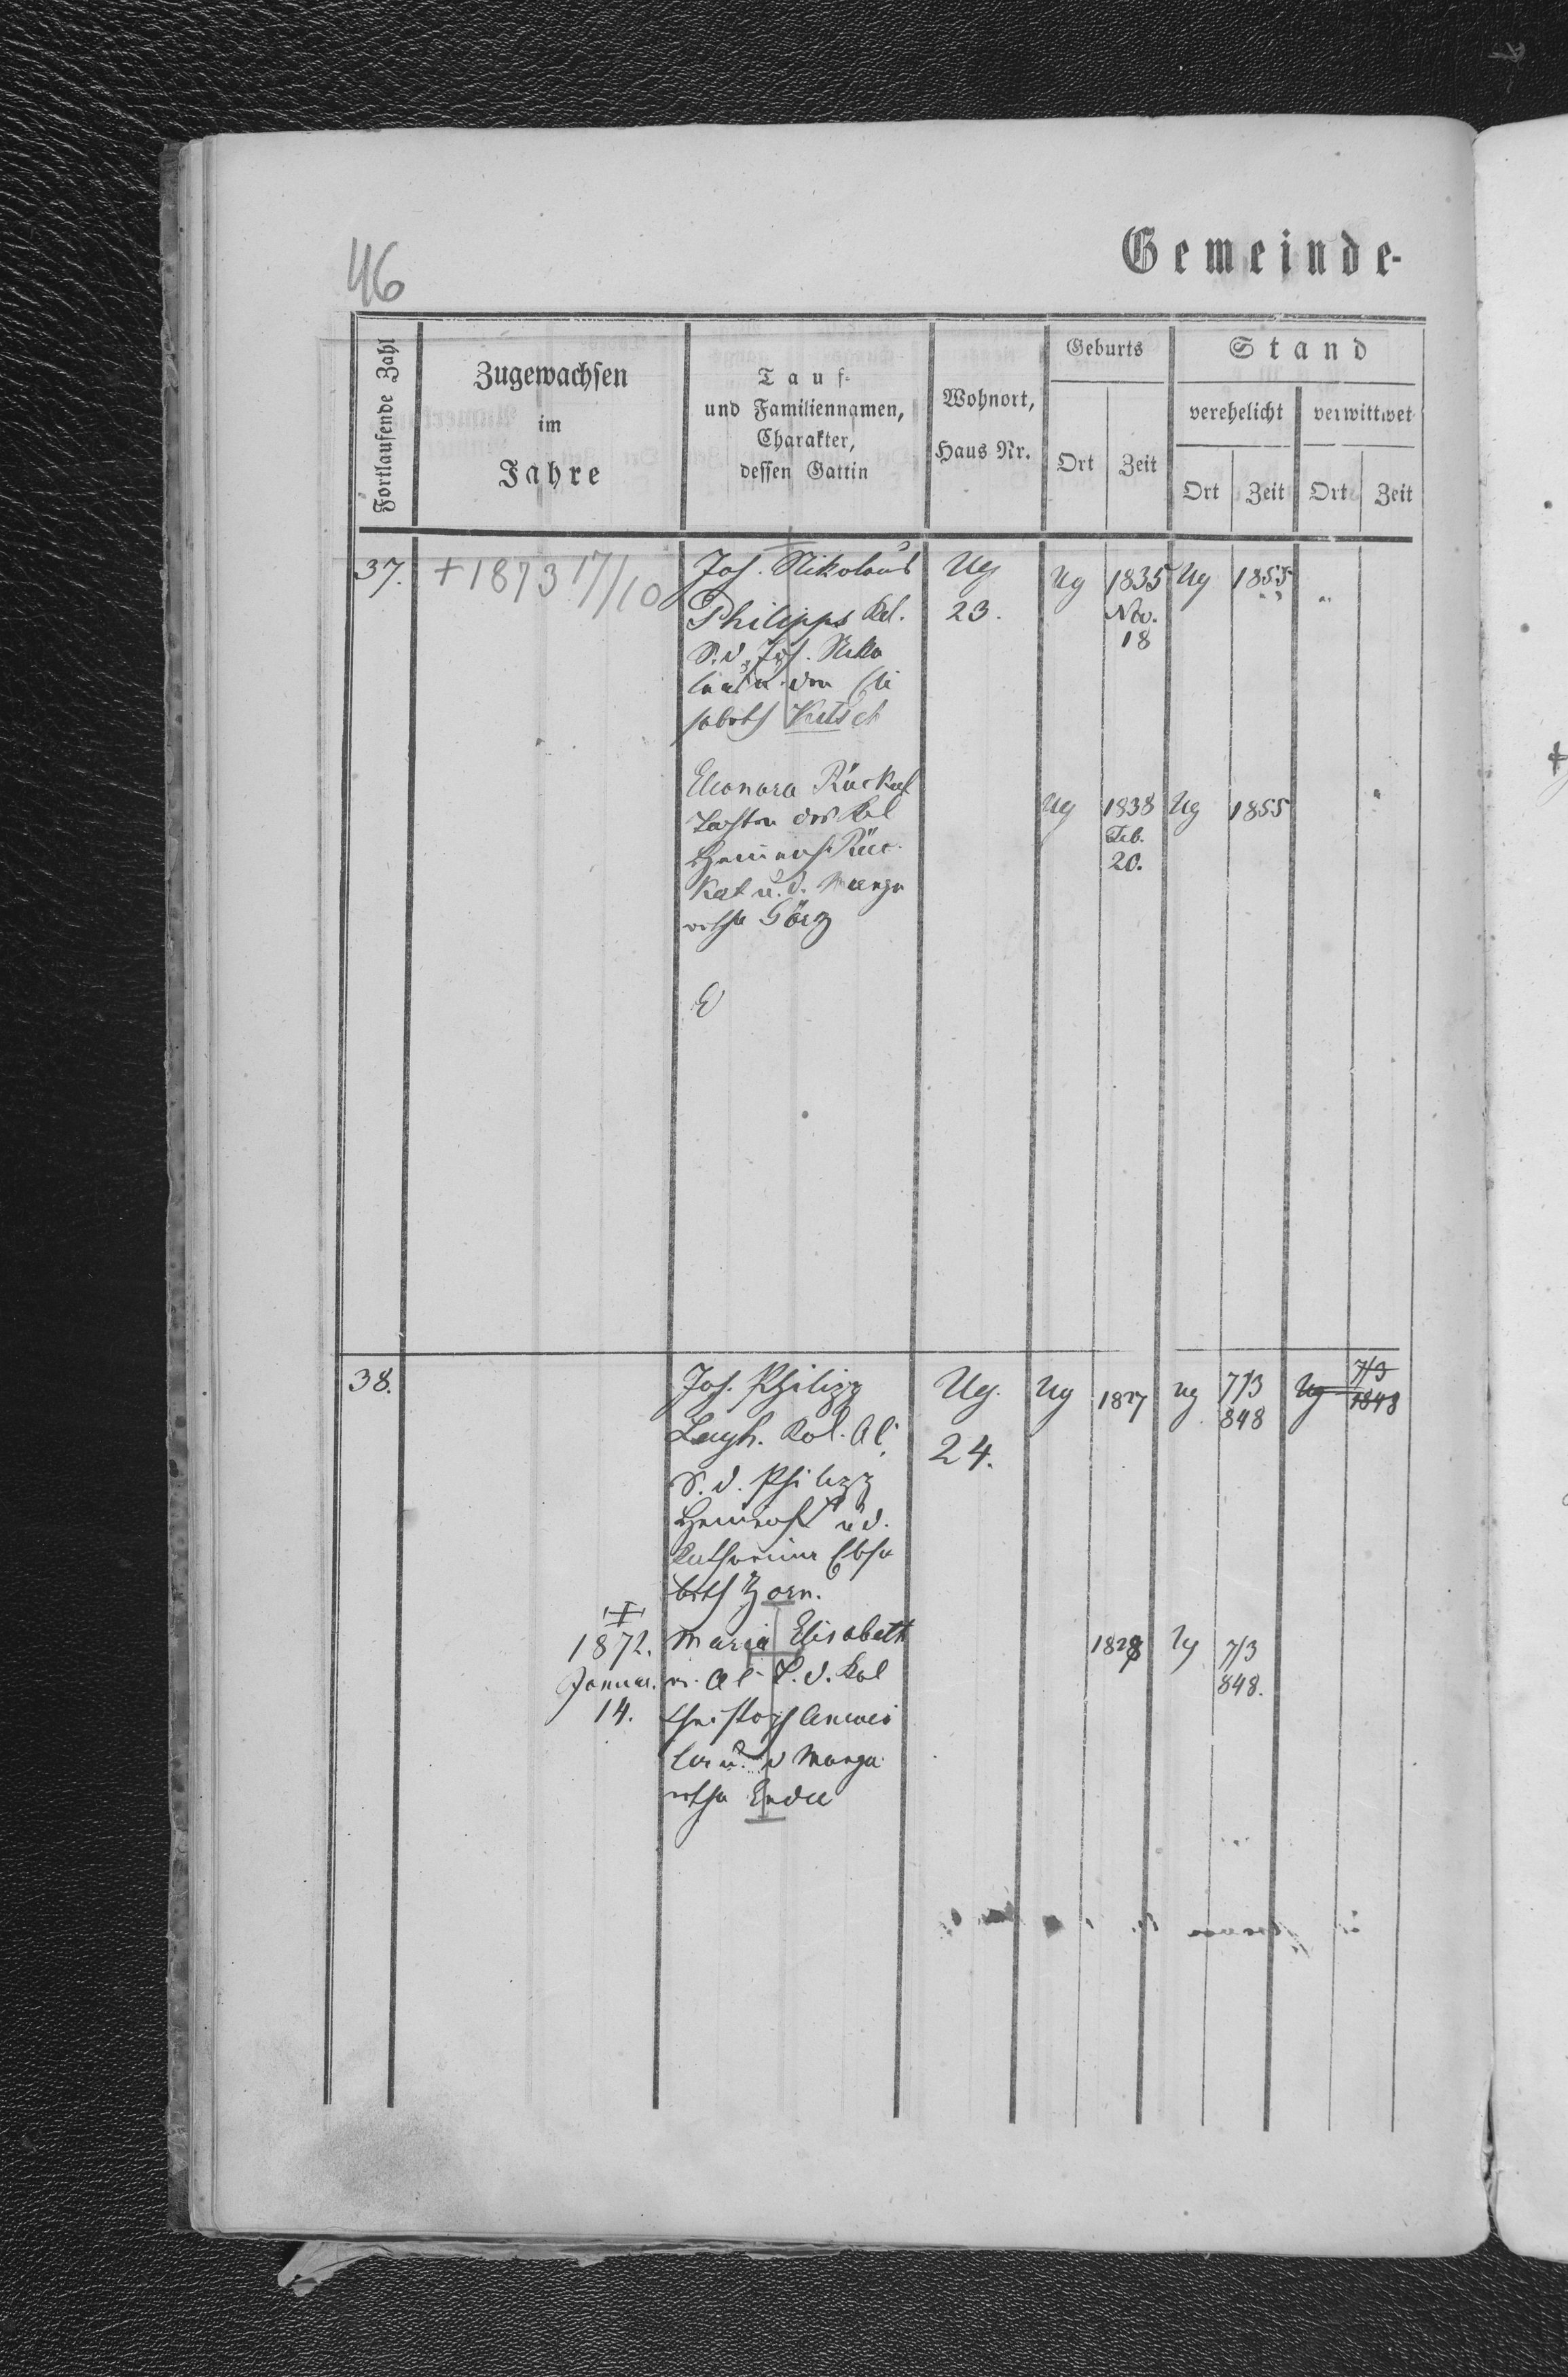 46
Gemeinde-
Fortlaufende Zahl
Zugewachsen
im
Jahre
Tauf-
und Familiennamen,
Charakter,
dessen Gattin
Wohnort,
Haus Nr.
Geburts
Ort
Zeit
Stand
verehelicht
verwittwet
Ort
Zeit
Ort
Zeit
37.
+ 1873 17/10
Joh. Nikolaus
Philipps Kol.
S. d. Joh. Niko
laus u. der Eli
sabeth Kutsch
Ug
23.
Ug
1835
Nov.
18
Ug
1855
Eleonora Rückat
Tochter des Kol
Heinrich Rüc
kat u. d. Marga
retha Görz
Ug
1838
Feb.
20.
Ug
1855
38.
Joh. Philipp
Kol. Al.
S. d. Philipp
Heinrich u d.
Katharina Elisa
beth Zorn.
Ug.
24.
Ug
1827
Ug
7/3
848
Ug
7/3
1848
1872.
Januar.
14.
Maria Elisabeth
r. Al. T. d. Kol
Christoph
ler u. d Marga
retha
1828
Ug
7/3
848.